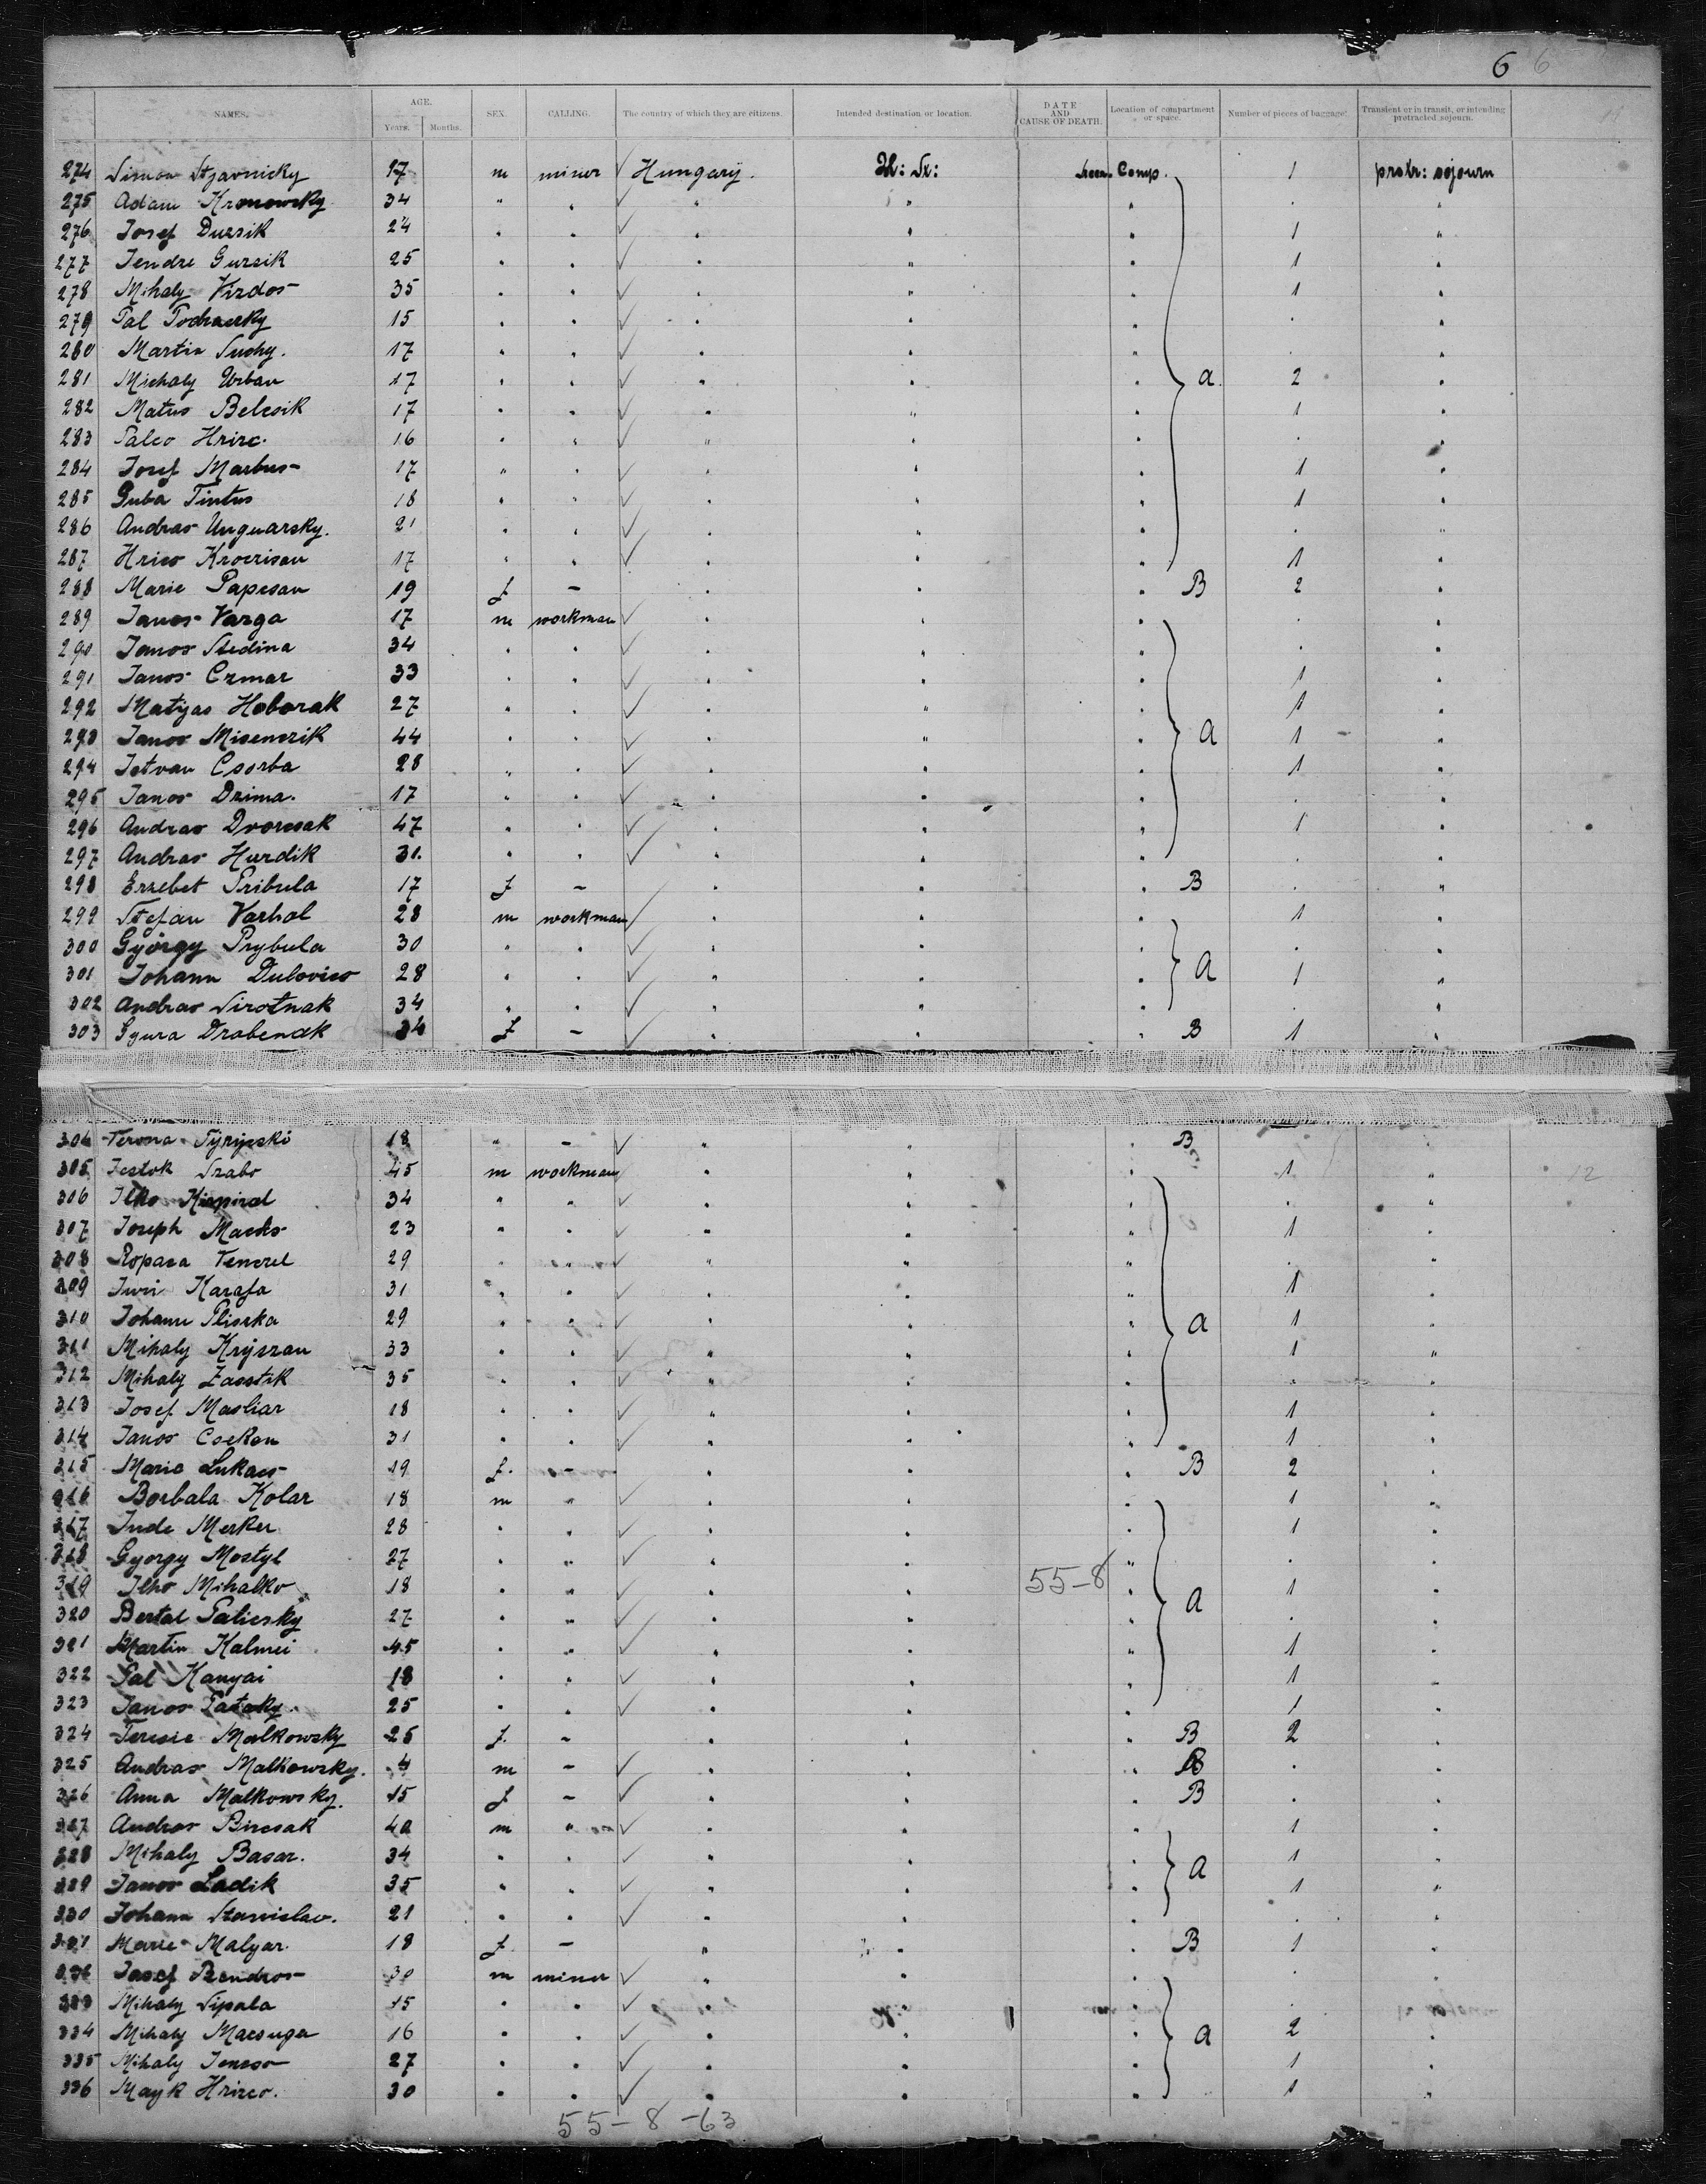 6 6
NAMES. AGE. Years. Months. SEX. CALLING. The country of which they are citizens. Intended destination or location. DATE AND CAUSE OF DEATH. Location of compartment or space. Number of pieces of baggage. Transient or in transit, or intending protracted sojourn.
274 Simon 17 m miner ✓ Hungary. Comp. 1 protr: sojourn
275 Adam Kronowsky 34 " " ✓ " " " . "
276 Josef Dursik 24 " " ✓ " " " 1 "
277 Jendre Gursik 25 " " ✓ " " " 1 "
278 Mihaly Virdos 35 " " ✓ " " " 1 "
279 Pal 15 " " ✓ " " " . "
280 Martin Suchy. 17 " " ✓ " " " . "
281 Michaly Urban 17 " " ✓ " " " a 2 "
282 Matus Belcsik 17 " " ✓ " " " 1 "
283 Palco Hrire. 16 " " ✓ " " " . "
284 Josef Marbus 17 " " ✓ " " " 1 "
285 Tintus 18 " " ✓ " " " 1 "
286 Andras Unguarsky. 21 " " ✓ " " " . "
287 Hrico 17 " " ✓ " " " 1 "
288 Marie Papcsan 19 f – " " " B 2 "
289 Janos Varga 17 m workman ✓ " " " . "
290 Janos Stedina 34 " " ✓ " " " . "
291 Janos Czmar 33 " " ✓ " " " 1 "
292 Matyas Hoborak 27 " " ✓ " " " 1 "
293 Janos Misenczik 44 " " ✓ " " " a 1 "
294 Istvan Csorba 28 " " ✓ " " " 1 "
295 Janos Dzima. 17 " " ✓ " " " . "
296 Andras Dvorcsak 47 " " ✓ " " " 1 "
297 Andras Hurdik 31. " " ✓ " " " . "
298 Erzebet Pribula 17 f – " " " B . "
299 Stefan Varhol 28 m workman ✓ " " " 1 "
300 György Prybula 30 " " ✓ " " " . "
301 Johann Dulovics 28 " " ✓ " " " a 1 "
302 Andras Sirotnak 34 " " ✓ " " " . "
303 Gyura Drabenak 34 f – ✓ " " " B 1 "
304 18 " – ✓ " " " B "
305 Szabo 45 m workman ✓ " " " 1 " 12
306 Ilko 34 " " ✓ " " " . "
307 Joseph 23 " " ✓ " " " 1 "
308 29 " " ✓ " " " . "
309 Iwri Karafa 31 " " ✓ " " " 1 "
310 Johann Pliszka 29 " " ✓ " " " a 1 "
311 Mihaly Kryszan 33 " " ✓ " " " 1 "
312 Mihaly 35 " " ✓ " " " . "
313 Josef Masliar 18 " " ✓ " " " 1 "
314 Janos 31 " " ✓ " " " 1 "
315 Maria Lukacs 19 f. – " " " B 2 "
316 Borbala Kolar 18 m " ✓ " " " 1 "
317 Merker 28 " " ✓ " " " 1 "
318 Gyorgy Mostyl 27 " " ✓ " " " . "
319 Ilko Mihalko 18 " " ✓ " " 55–8 " a 1 "
320 Bertal 27 " " ✓ " " " . "
321 Martin Kalmei 45 " " ✓ " " " 1 "
322 Pal Kanyai 18 " " ✓ " " " 1 "
323 Janos Pataky. 25 " " ✓ " " " 1 "
324 Teresie Malkowsky 25 f. – " " " B 2 "
325 Andras Malkowsky. 4 m – ✓ " " " B . "
326 Anna Malkowsky. 15 f – ✓ " " " B . "
327 Andras Bircsak 40 m " ✓ " " " 1 "
328 Mihaly Basar. 34 " " ✓ " " " 1 "
329 Janos Ladik 35 " " ✓ " " " a 1 "
330 Johann Stanislav. 21 " " ✓ " " " . "
331 Marie Malyar. 18 f – " " " B 1 "
Josef Bendros 30 m miner ✓ " " " . "
333 Mihaly Sipala 15 " " ✓ " " " . "
334 Mihaly Macsuga 16 " " ✓ " " " a 2 "
335 Mihaly Jencso 27 " " ✓ " " " 1 "
336 Mayk Hrirco. 30 " " ✓ " " " 1 "
55–8–63